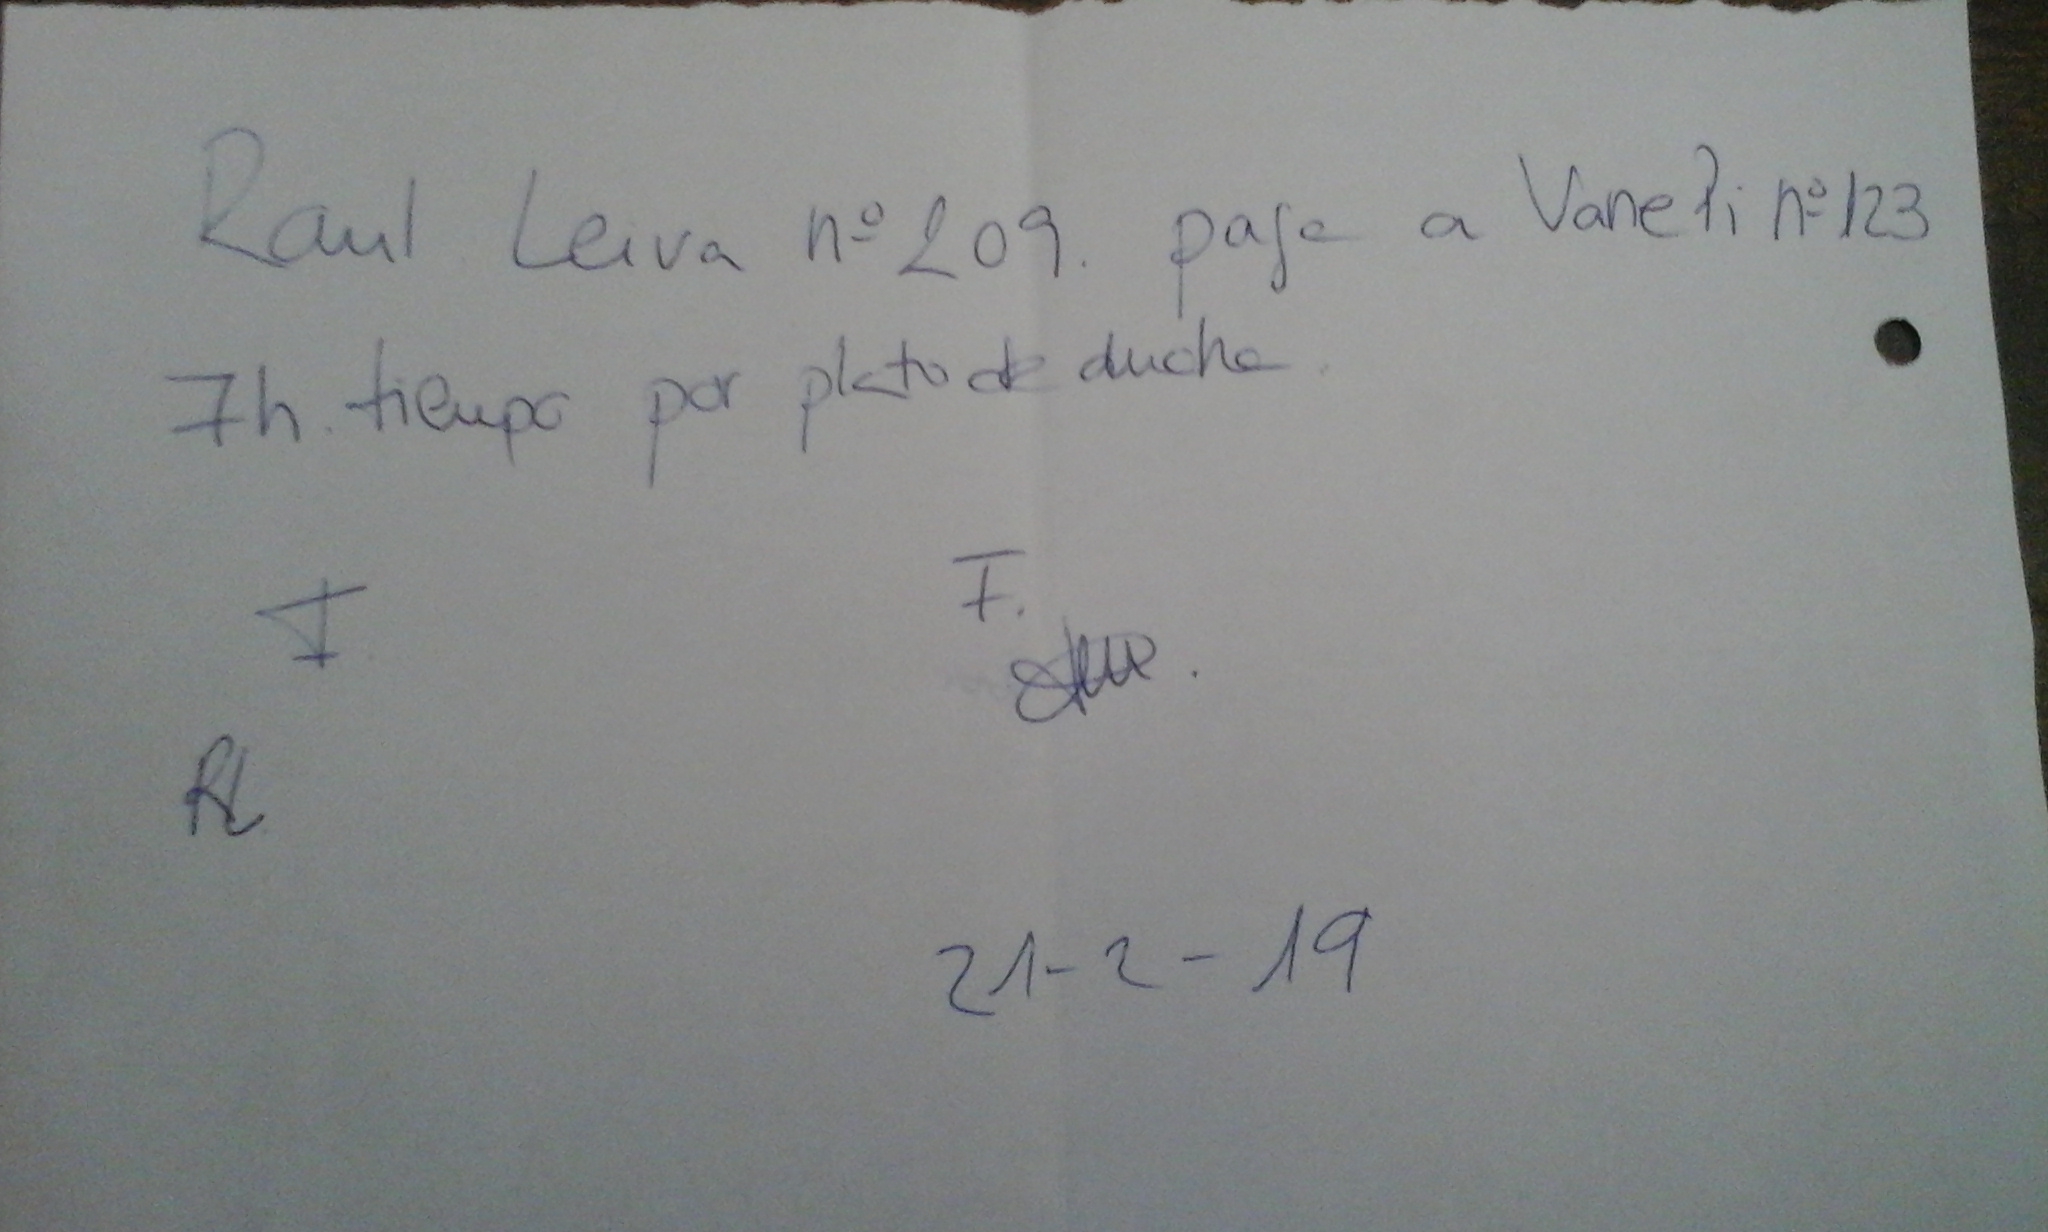 Raul Leiva nº 209. paga a Vaneli nº 123
7h. tiempo por plato de ducha.
F. F.
RL
21-2-19